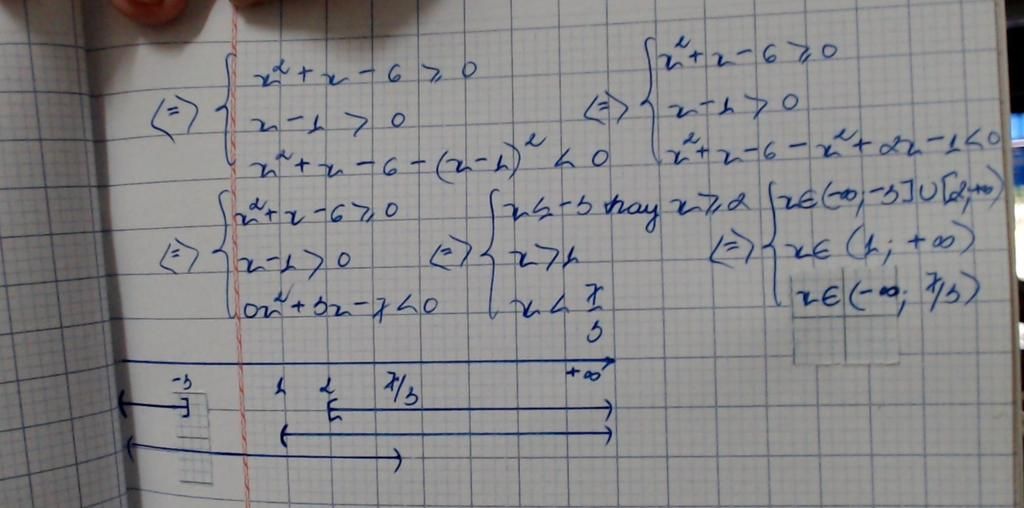 ⇔ { x² + x - 6 ≥ 0
x - 1 > 0
x² + x - 6 - (x - 1)² < 0
⇔ { x² + x - 6 ≥ 0
x - 1 > 0
x² + x - 6 - x² + 2x - 1 < 0
⇔ { x² + x - 6 ≥ 0
x - 1 > 0
0x² + 3x - 7 < 0
⇔ { x ≤ -3 hay x ≥ 2
x > 1
x < 7/3
⇔ { x ∈ (-∞; -3] ∪ [2; +∞)
x ∈ (1; +∞)
x ∈ (-∞; 7/3)
-3 1 2 7/3 +∞